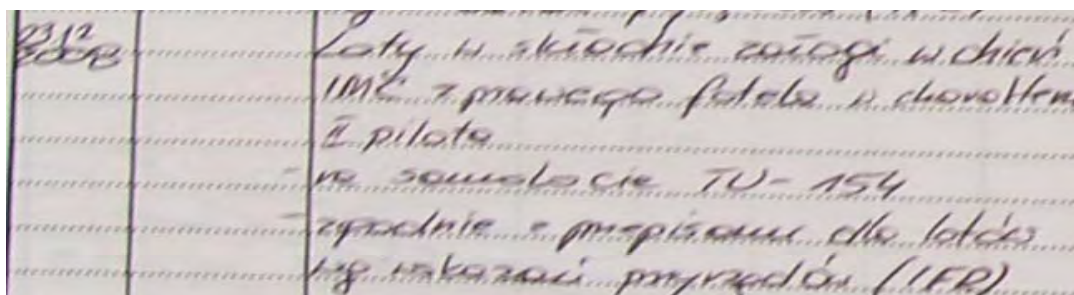 03.12
2008
Loty w składzie załogi w dzień
IMC z prawego fotela w charakterze
II pilota
- na samolocie TU-154
- zgodnie z przepisami dla lotów
wg wskazań przyrządów (IFR)